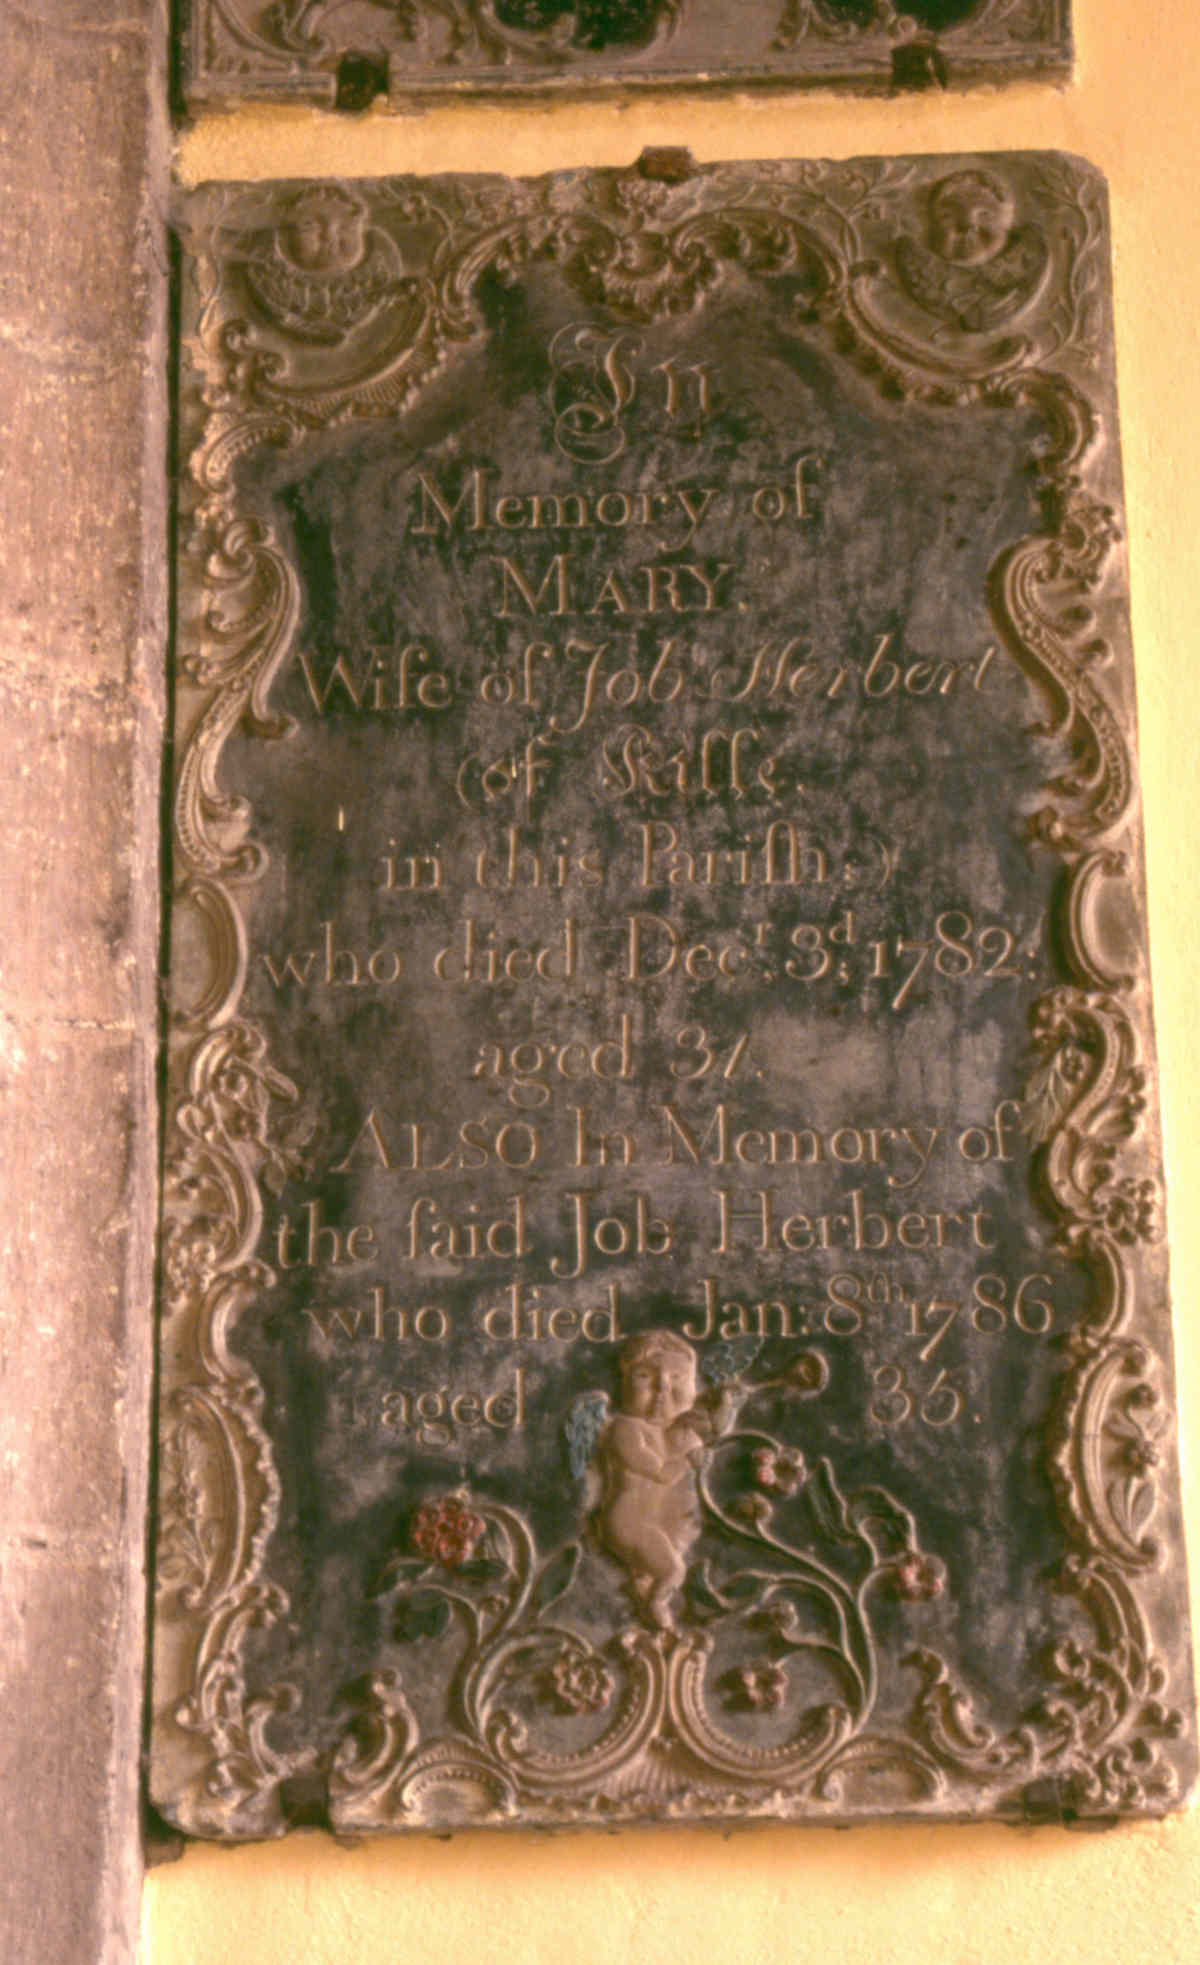 In
Memory of
MARY.
Wife of Job Herbert
(of Kills.
in this Pariſh;)
who died Decr. 3d. 1782:
aged 31.
ALSO In Memory of
the ſaid Job Herbert
who died Jan: 8th. 1786
aged 35.